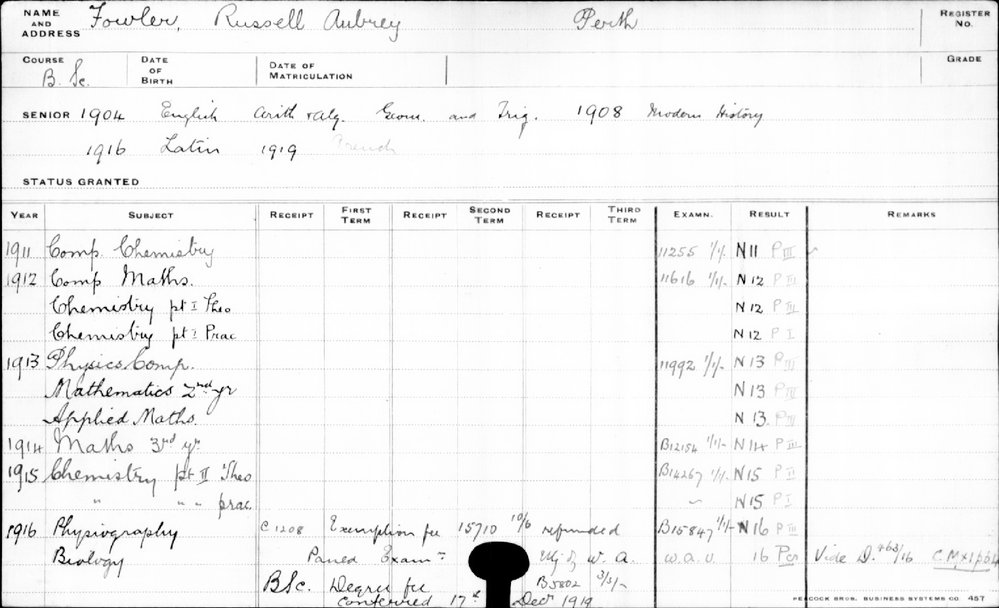 NAME AND ADDRESS Fowler, Russell Aubrey Perth REGISTER No.
COURSE B. Sc. DATE OF BIRTH DATE OF MATRICULATION GRADE
SENIOR 1904 English Arith & Alg. Geom. and Trig. 1908 Modern History
1916 Latin 1919 French
STATUS GRANTED
YEAR SUBJECT RECEIPT FIRST TERM RECEIPT SECOND TERM RECEIPT THIRD TERM EXAMN. RESULT REMARKS
1911 Comp. Chemistry 11255 1/1/- N 11 P III
1912 Comp Maths. 11616 1/1/- N 12 P III
Chemistry pt I Theo N 12 P III
Chemistry pt I Prac N 12 P I
1913 Physics Comp. 11992 1/1/- N 13 P III
Mathematics 2nd yr N 13 P III
Applied Maths. N 13. P III
1914 Maths 3rd yr. B12154 1/1/- N 14 P III
1915 Chemistry pt II Theo B14267 1/1/- N 15 P II
" " " prac. N 15 P I
1916 Physiography C 1208 Exemption fee 15710 10/6 refunded B15847 1/1/- N 16 P III
Biology Passed Exam Uty of W. A. W.A.U. 16 Pass Vide D. 963/16 C.M. p614
BSc. Degree fee B5802 3/3/-
conferred 17th Decr 1919
PEACOCK BROS. BUSINESS SYSTEMS CO. 457